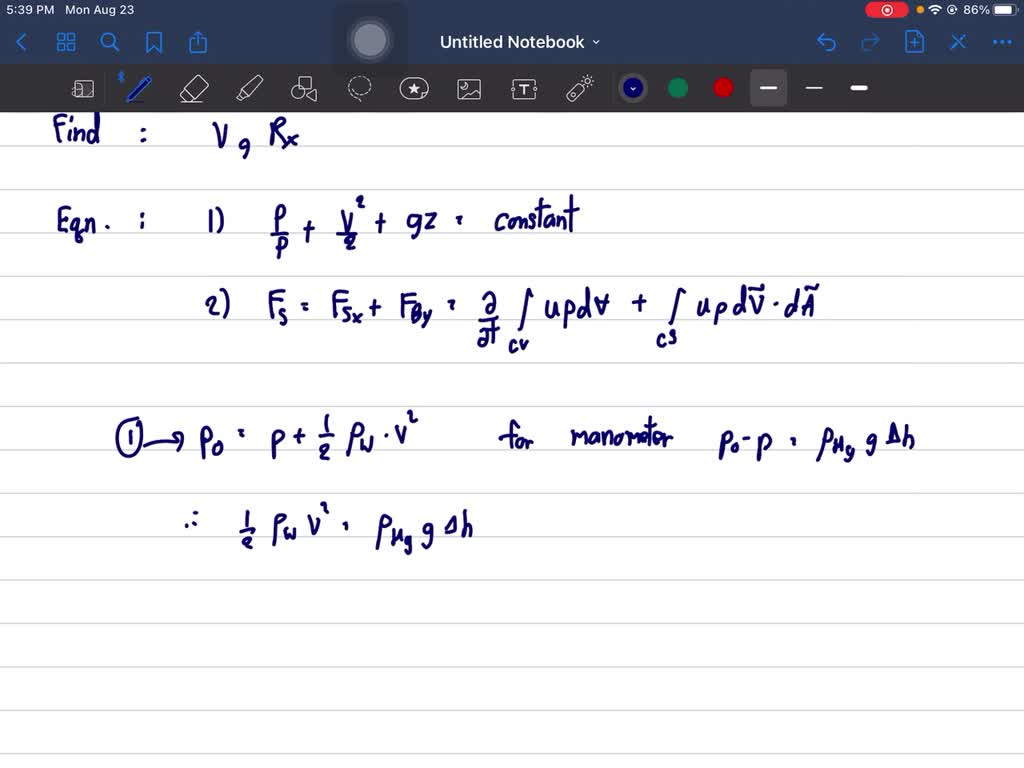 5:39 PM Mon Aug 23 86%
Untitled Notebook
T
Find : V, Rx
Eqn. : 1) p/ρ + V²/2 + gz = constant
2) Fs = Fsx + FBy = ∂/∂t ∫cv uρd∀ + ∫cs uρdV⃗ · dA⃗
① → p₀ = p + 1/2 ρw · V² for manometer p₀ - p = ρHg g Δh
∴ 1/2 ρw V² = ρHg g Δh